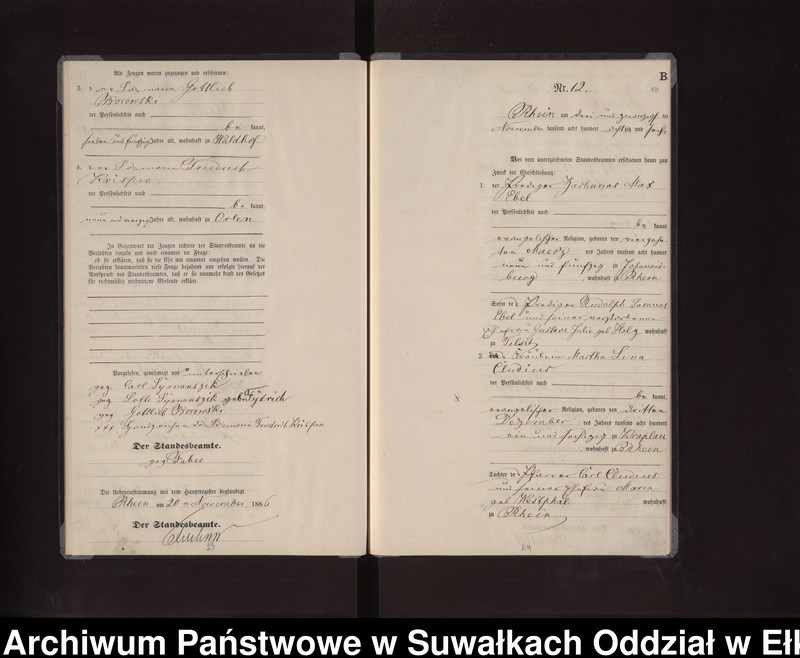 Als Zeugen waren zugezogen und erschienen:
3. der Gottlieb
Borowski
der Persönlichkeit nach
be kannt,
sieben und fünfzig Jahre alt, wohnhaft zu Waldhof
4. der Friedrich
der Persönlichkeit nach
be kannt,
neun und vierzig Jahre alt, wohnhaft zu Orlen
In Gegenwart der Zeugen richtete der Standesbeamte an die
Verlobten einzeln und nach einander die Frage:
ob sie erklären, daß sie die Ehe mit einander eingehen wollen. Die
Verlobten beantworteten diese Frage bejahend und erfolgte hierauf der
Ausspruch des Standesbeamten, daß er sie nunmehr kraft des Gesetzes
für rechtmäßig verbundene Eheleute erkläre.
Vorgelesen, genehmigt und unterschrieben
gez. Carl Symanszik
gez. Lotte Symanszik geb.
gez. Gottlieb Borowski
xxx Handzeichen des Friedrich
Der Standesbeamte.
gez. Faber
Die Uebereinstimmung mit dem Hauptregister beglaubigt
Rhein am 20 ten November 1886
Der Standesbeamte.
B
Nr. 12.
Rhein am drei und zwanzigsten
November tausend acht hundert achtzig und sechs
Vor dem unterzeichneten Standesbeamten erschienen heute zum
Zweck der Eheschließung:
1. der Prediger Zacharias Max
Ebel
der Persönlichkeit nach
be kannt
evangelischer Religion, geboren den vierzehn-
ten Maerz des Jahres tausend acht hundert
neun und fünfzig zu Johannis-
, wohnhaft zu Rhein
Sohn des Prediger Rudolph Samuel
Ebel und seiner verstorbenen
Ehefrau Gustave Julie geb. wohnhaft
zu Tilsit
2. Fräulein Martha Lina
Cludius
der Persönlichkeit nach
be kannt
evangelischer Religion, geboren den dritten
Dezember des Jahres tausend acht hundert
ein und sechzig zu Kraplau
, wohnhaft zu Rhein
Tochter des Pfarrer Carl Cludius
und seiner Ehefrau Maria
geb. Westphal wohnhaft
zu Rhein
Archiwum Państwowe w Suwałkach Oddział w Ełk